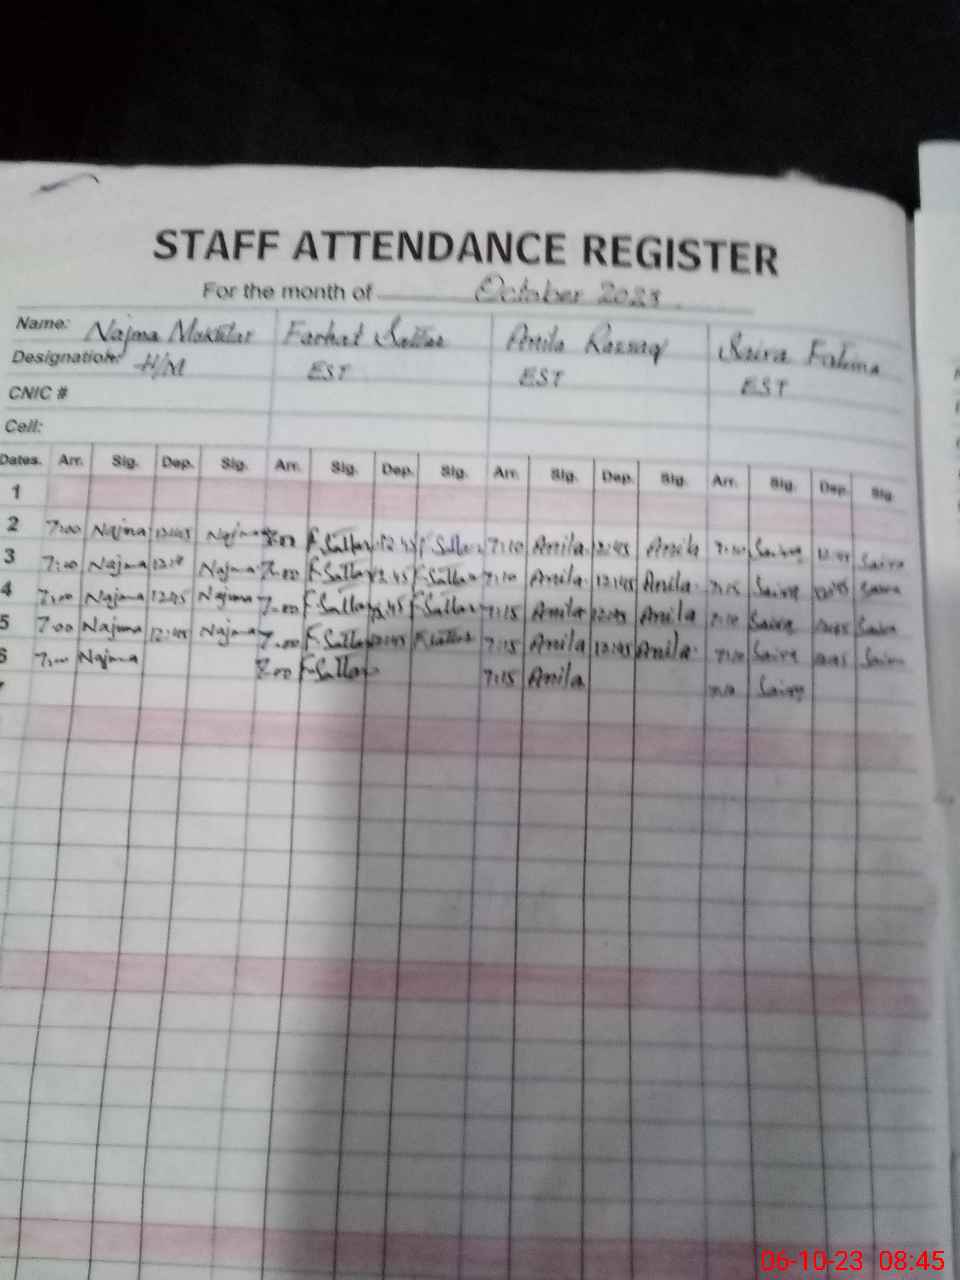 STAFF ATTENDANCE REGISTER
For the month of October 2023
Name: Najma Mukhtar Farhat Sattar Anila Razzaq Saira Fatima
Designation: H/M EST EST EST
CNIC #
Cell:
Dates. Arr. Sig. Dep. Sig. Arr. Sig. Dep. Sig. Arr. Sig. Dep. Sig. Arr. Sig. Dep. Sig.
1
2 7:00 Najma 12:45 Najma F-Sattar 12:45 F-Sattar 7:10 Anila 12:45 Anila 7:10 Saira Saira
3 7:00 Najma Najma 7:00 F-Sattar 12:45 F-Sattar 7:10 Anila 12:45 Anila 7:15 Saira Saira
4 7:00 Najma 12:45 Najma 7:00 F-Sattar 12:45 F-Sattar 7:15 Anila 12:45 Anila 7:10 Saira Saira
5 7:00 Najma 12:45 Najma 7:00 F-Sattar F-Sattar 7:15 Anila 12:45 Anila 7:10 Saira Saira
6 7:00 Najma F-Sattar 7:15 Anila Saira
06-10-23 08:45